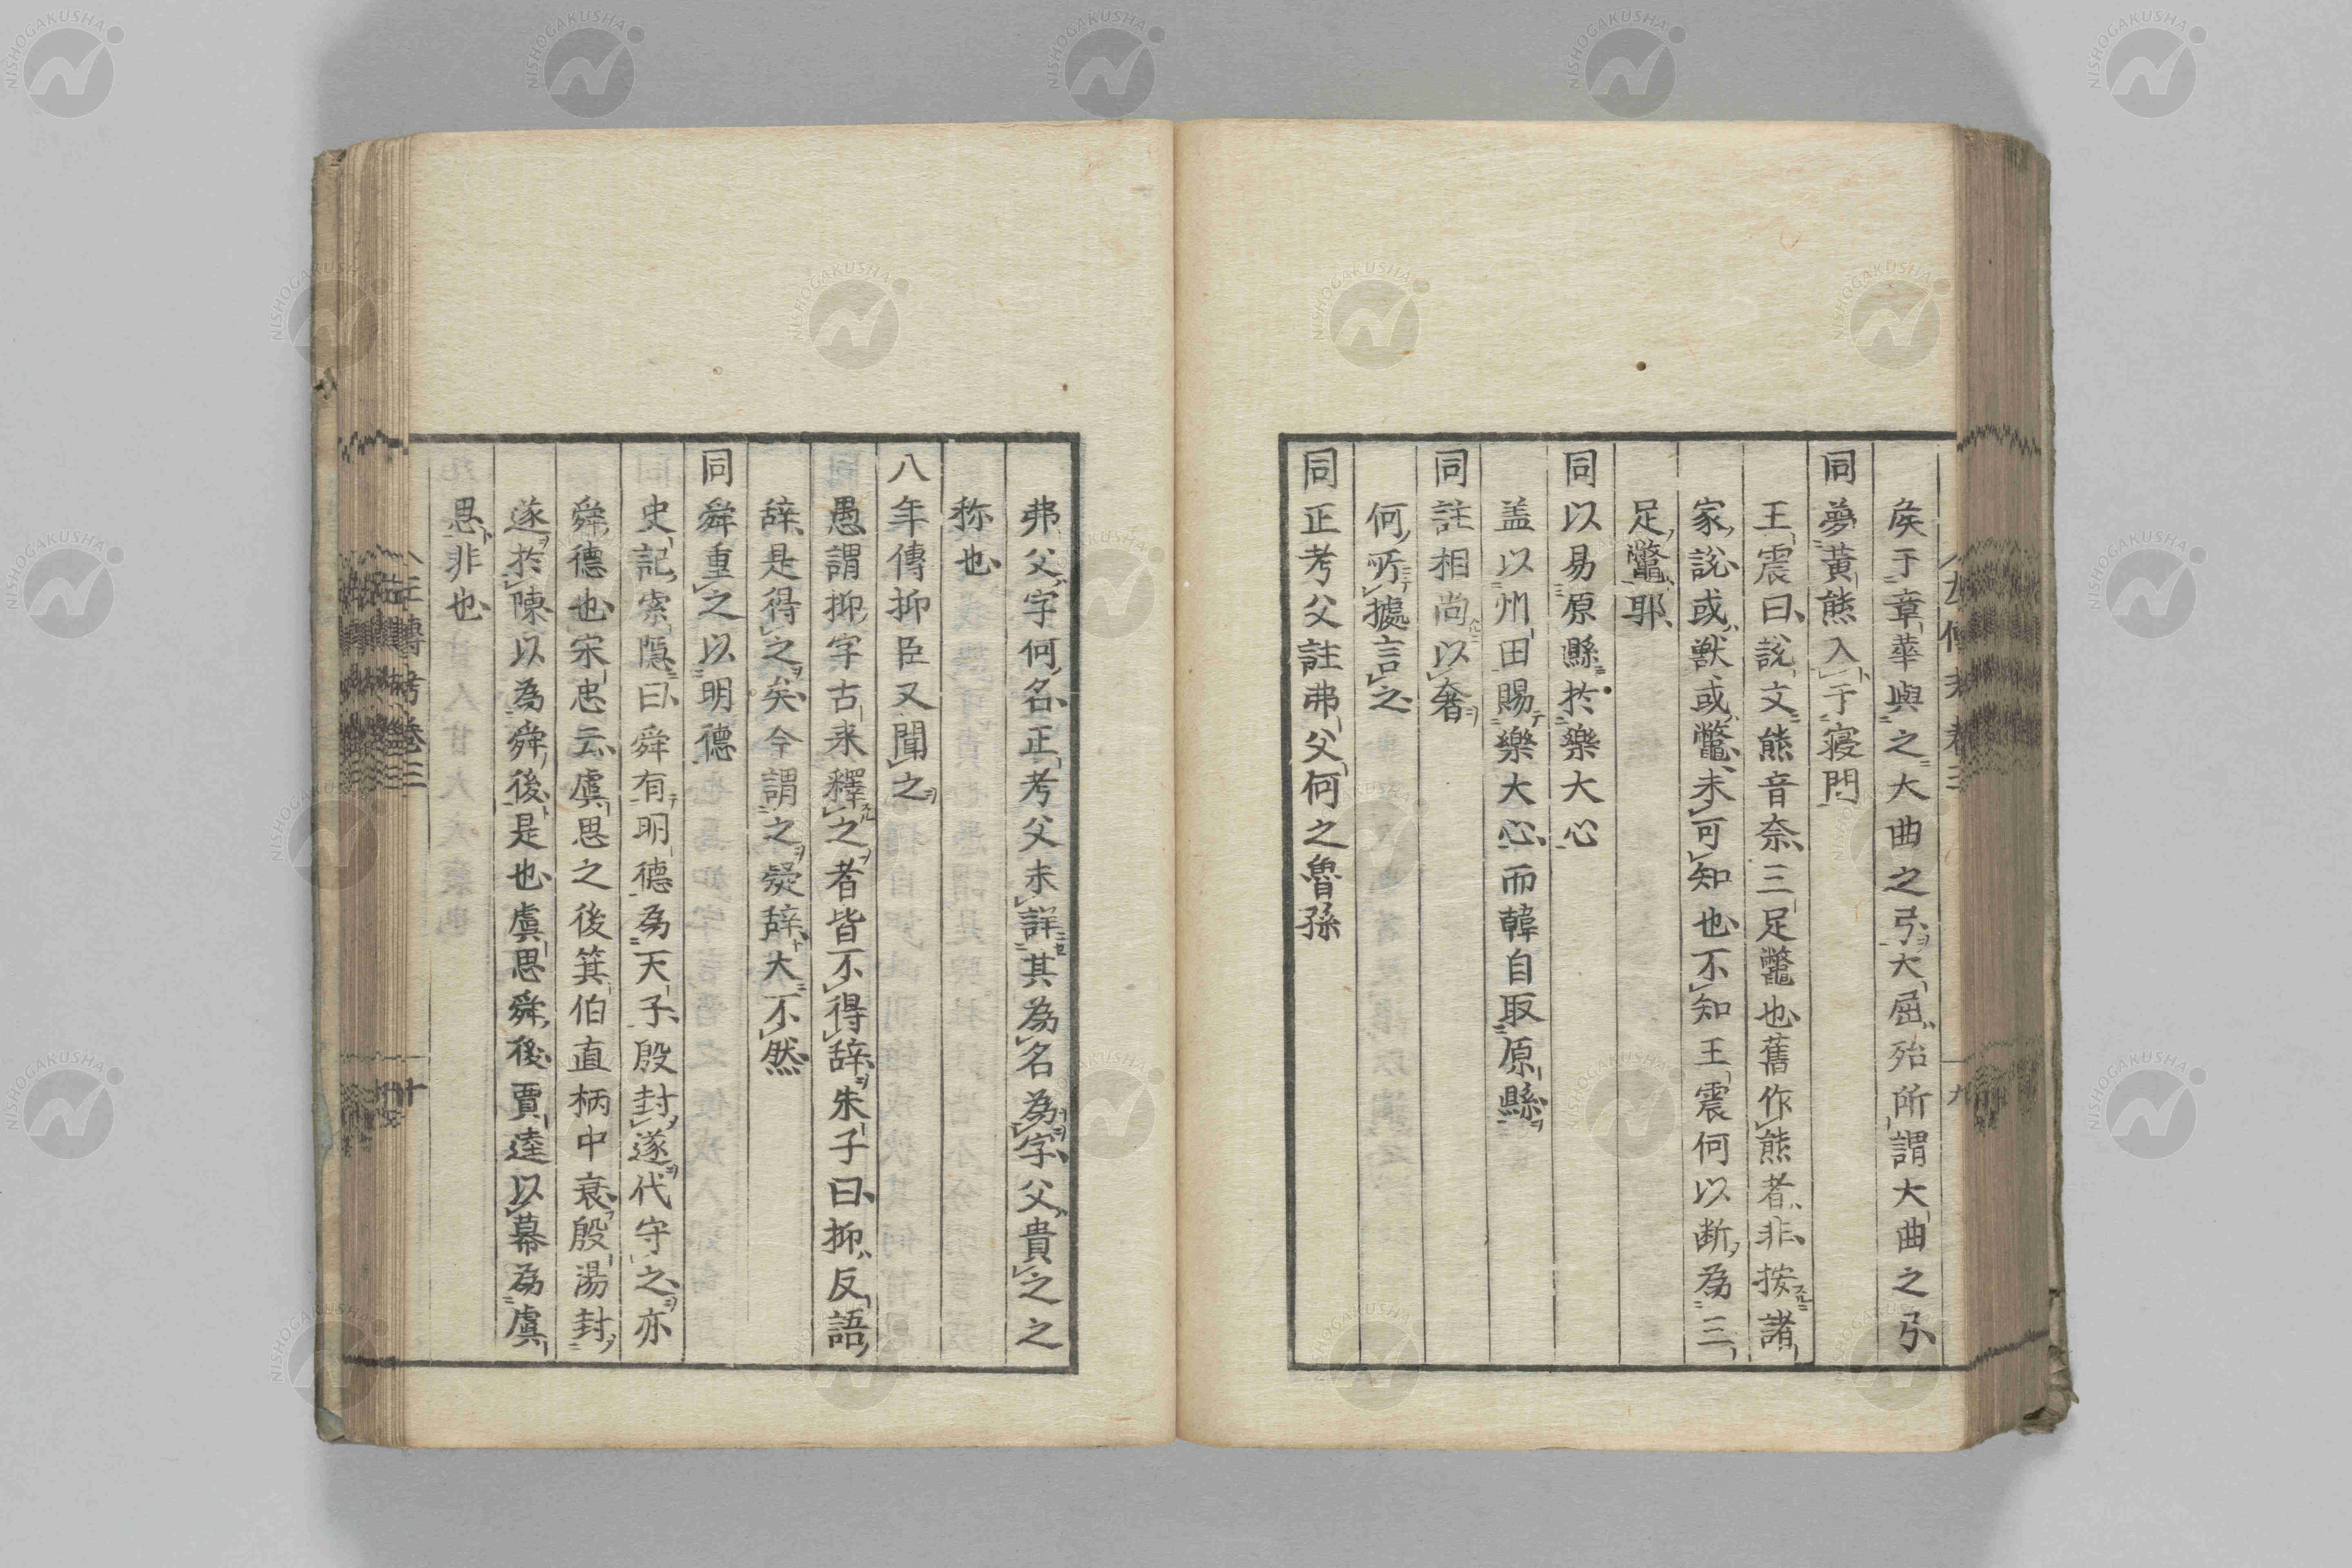 侯于章華與之大曲之弓大屈殆所謂大曲之弓
同夢黃熊入于寝門
王震曰說文熊音奈三足鼈也舊作熊者非按諸
家說或獸或鼈未可知也不知王震何以断為三
足鼈耶
同以易原縣於樂大心
盖以州田賜樂大心而韓自取原縣
同註相尚以奢
何所據言之
同正考父註弗父何之魯孫
弗父字何名正考父未詳其為名為字父貴之之
称也
八年傳抑臣又聞之
愚謂抑字古来釋之者皆不得辞朱子曰抑反語
辞是得之矣今謂之發辞大不然
同舜重之以明德
史記索隠曰舜有明德為天子殷封遂代守之亦
舜德也宋忠云虞思之後箕伯直柄中衰殷湯封
遂於陳以為舜後是也虞思舜後賈逵以幕為虞
思非也
左傳考卷三
九
左傳考卷三
十
NISHOGAKUSHA